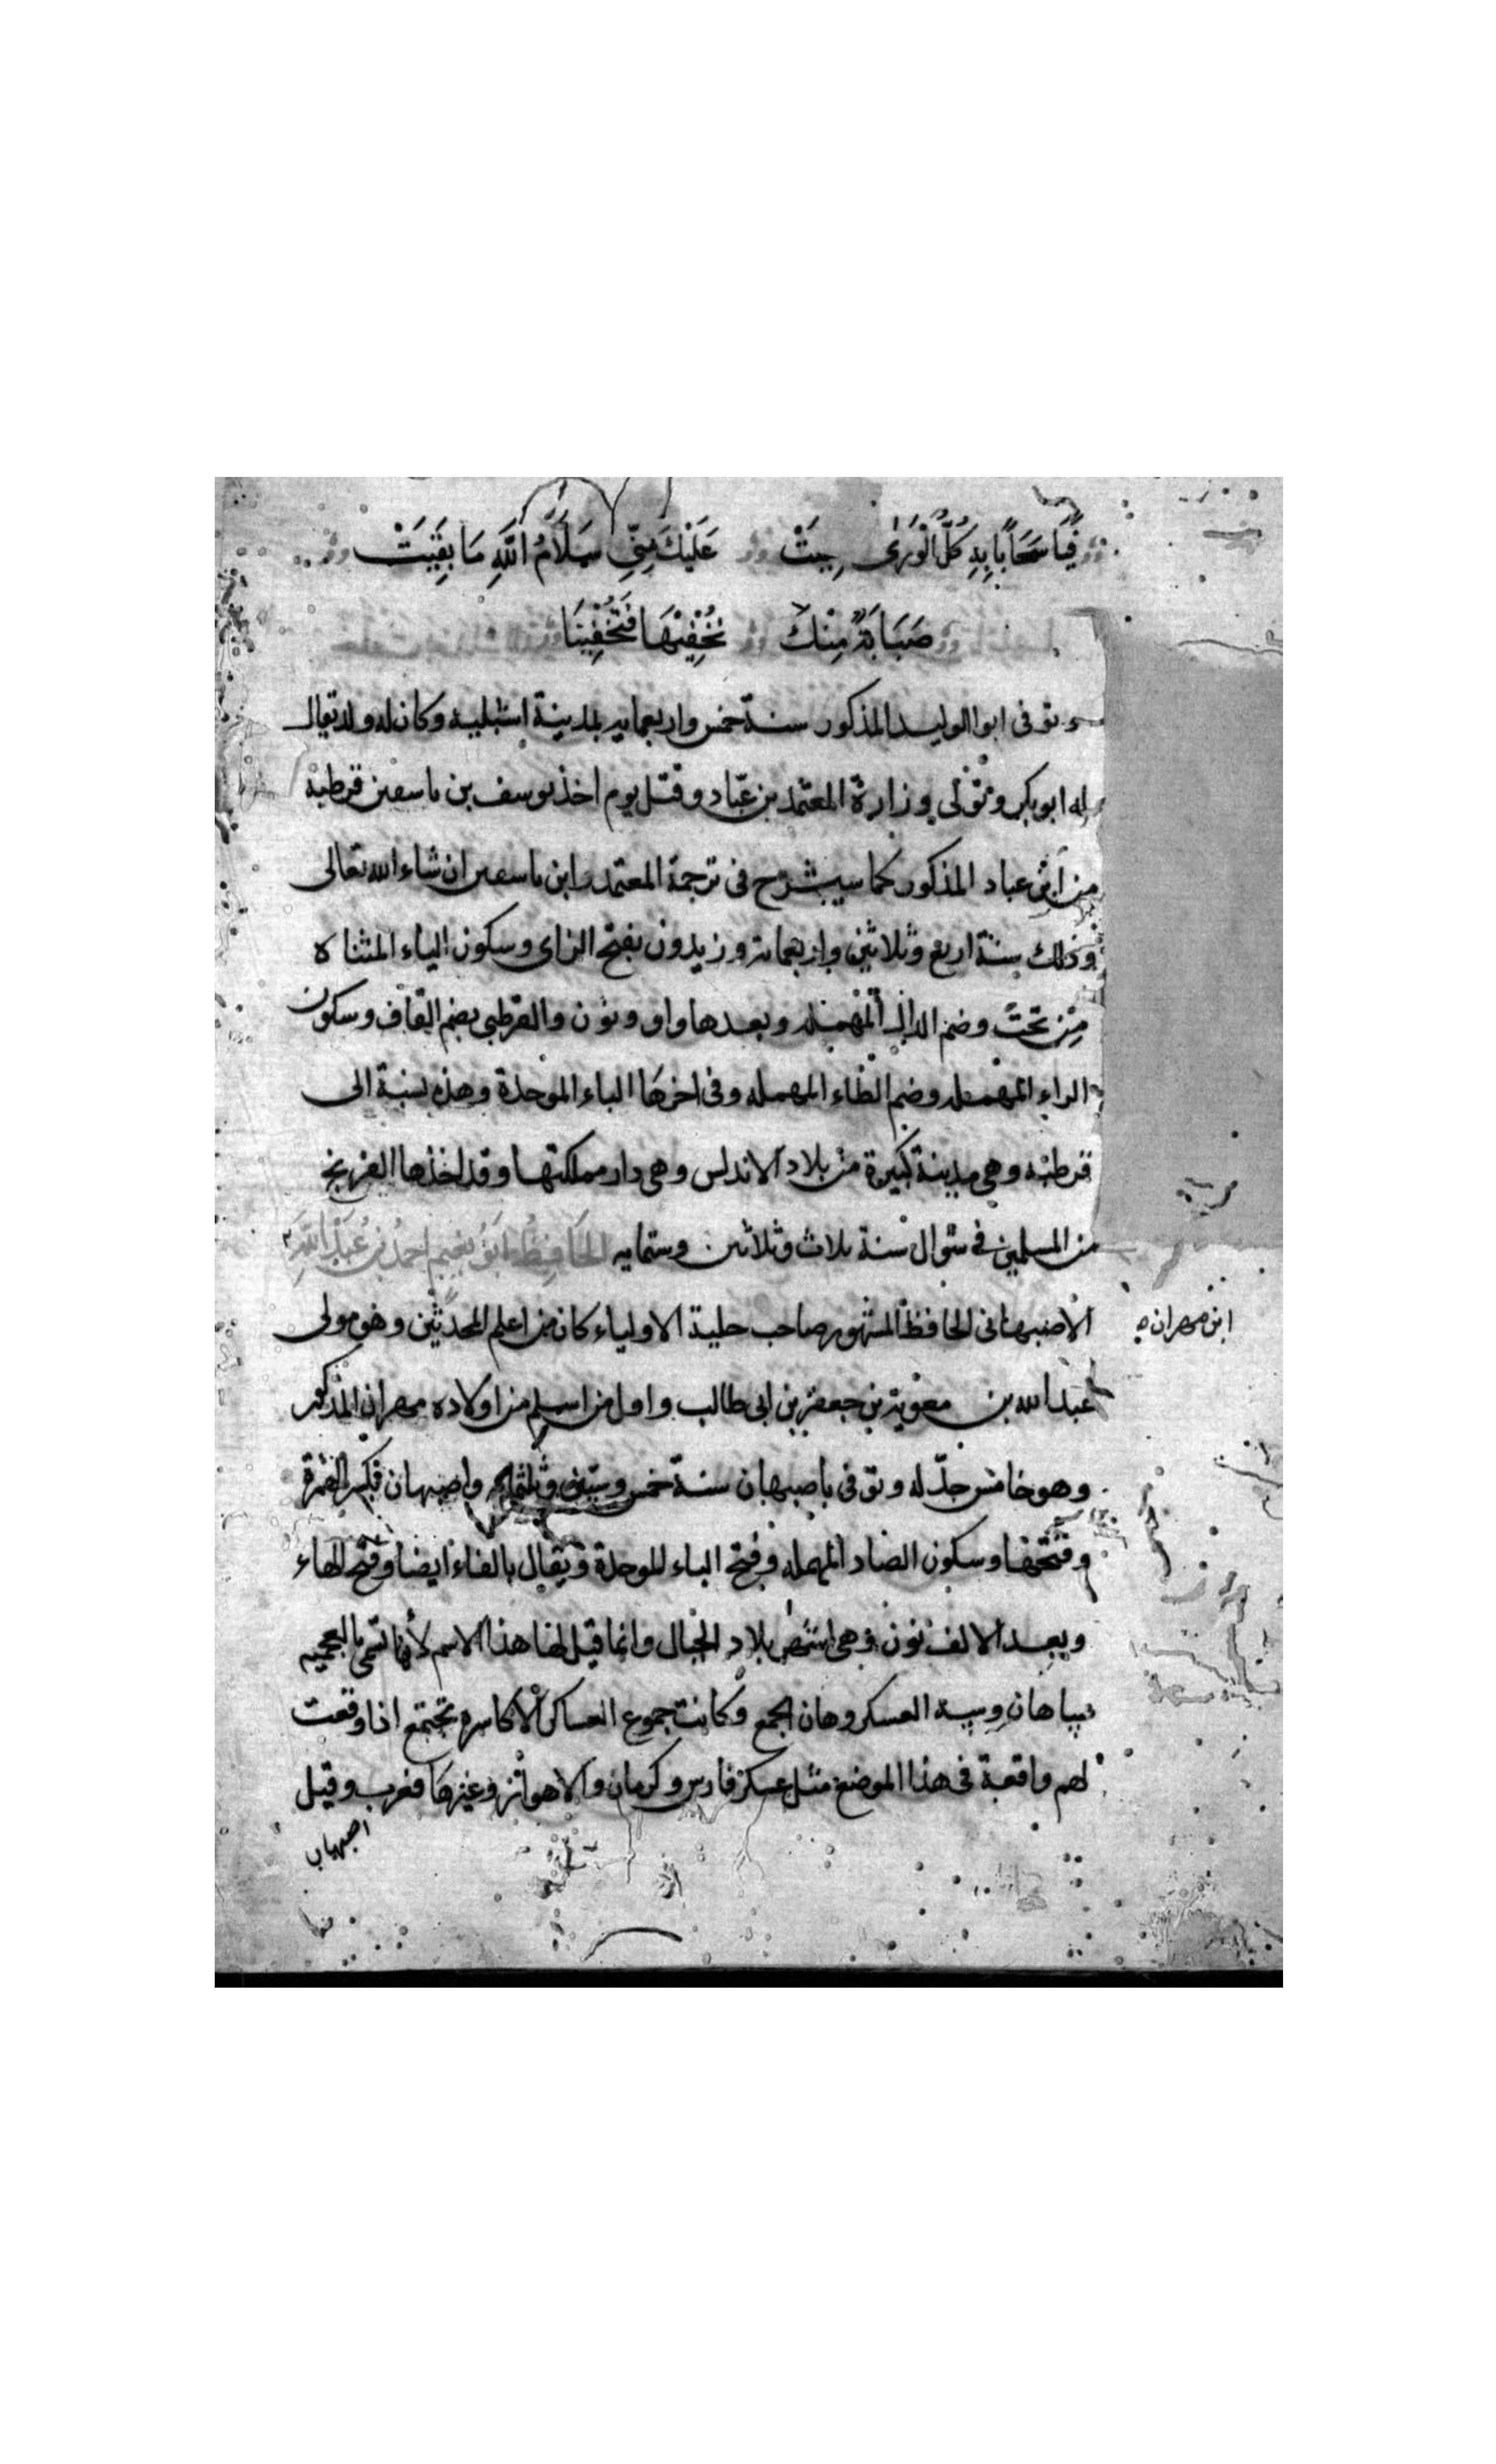 فَيَا سَحَابًا بِهِ كُلُّ الْوَرَى عَلَيْكَ مِنِّي سَلَامُ اللَّهِ مَا بَقِيَتْ
صَبَابَةٌ مِنْكَ نُخْفِيْهَا فَتُخْفِيْنَا
وتوفى ابو الوليد المذكور سنة خمس واربعمايه بمدينة اشبلية وكان له ولد يقال
له ابو بكر وتولى وزارة المعتمد بن عباد وقتل يوم اخذ يوسف بن تاسفين قرطبة
من ابن عباد المذكور كما سيشرح في ترجمة المعتمد وابن تاسفين ان شاء الله تعالى
وذلك سنة اربع وثلاثين واربعمائة وزيدون بفتح الزاى وسكون الياء المثناه
من تحت وضم الدال المهمله وبعدها واو ونون والقرطبى بضم القاف وسكون
الراء المهمله وضم الطاء المهمله وفى اخرها الباء الموحدة وهذه نسبة الى
قرطبه وهى مدينة كبيرة من بلاد الاندلس وهى دار مملكتها وقد اخذها الفرنج
من المسلمين فى شوال سنة ثلاث وثلاثين وستمايه الحَافِظُ ابو نعيم احمدُ بنُ عَبْدِ اللهِ
الاصبهانى الحافظ المشهور صاحب حلية الاولياء كان من اعلم المحدثين وهو مولى
ابن مهران
عبد الله بن معوية بن جعفر بن ابى طالب واول من اسلم من اولاده مهران المذكور
وهو خامس جد له وتوفى باصبهان سنة خمس وستين وثلثمايه واصبهان بكسر الهمزة
وفتحها وسكون الصاد المهمله وفتح الباء الموحدة ويقال بالفاء ايضا وفتح الهاء
وبعد الالف نون وهى اشهر بلاد الجبال وانما قيل لها هذا الاسم لأنها تسمى بالعجميه
سپاهان وسپه العسكر وهان الجمع وكانت جموع العساكر الاكاسره تجتمع اذا وقعت
لهم واقعة فى هذا الموضع مثل عسكر فارس وكرمان والاهواز وغيرها فعرب وقيل
اصبهان